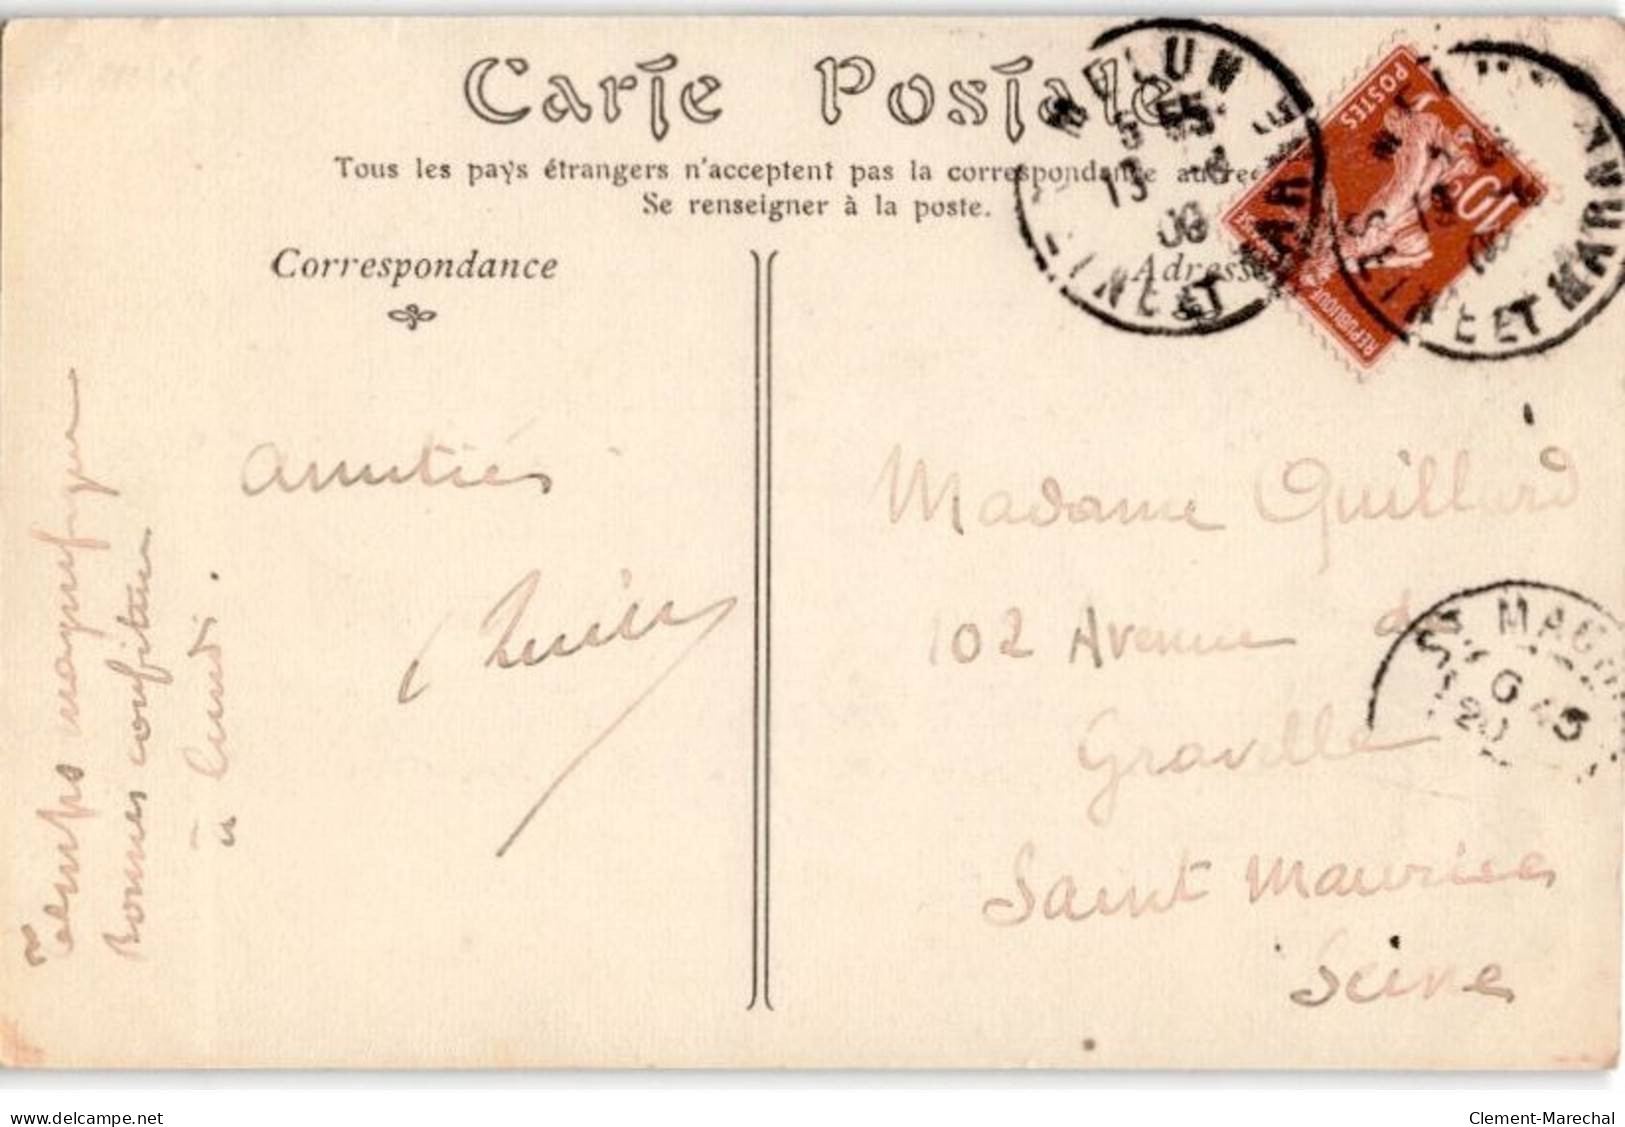 Carte Postale
Tous les pays étrangers n'acceptent pas la correspondance au
Se renseigner à la poste.
Correspondance
Adresse
MELUN
SEINE ET MARNE
POSTES
10c
REPUBLIQUE
SEINE ET MARNE
Amitiés
Temps magnifique
Bonnes confitures
à lundi.
Madame Quillard
102 Avenue de
Gravelle
Saint Maurice
Seine
ST MAURI
6 45
20
delcampe.net
Clement-Marechal